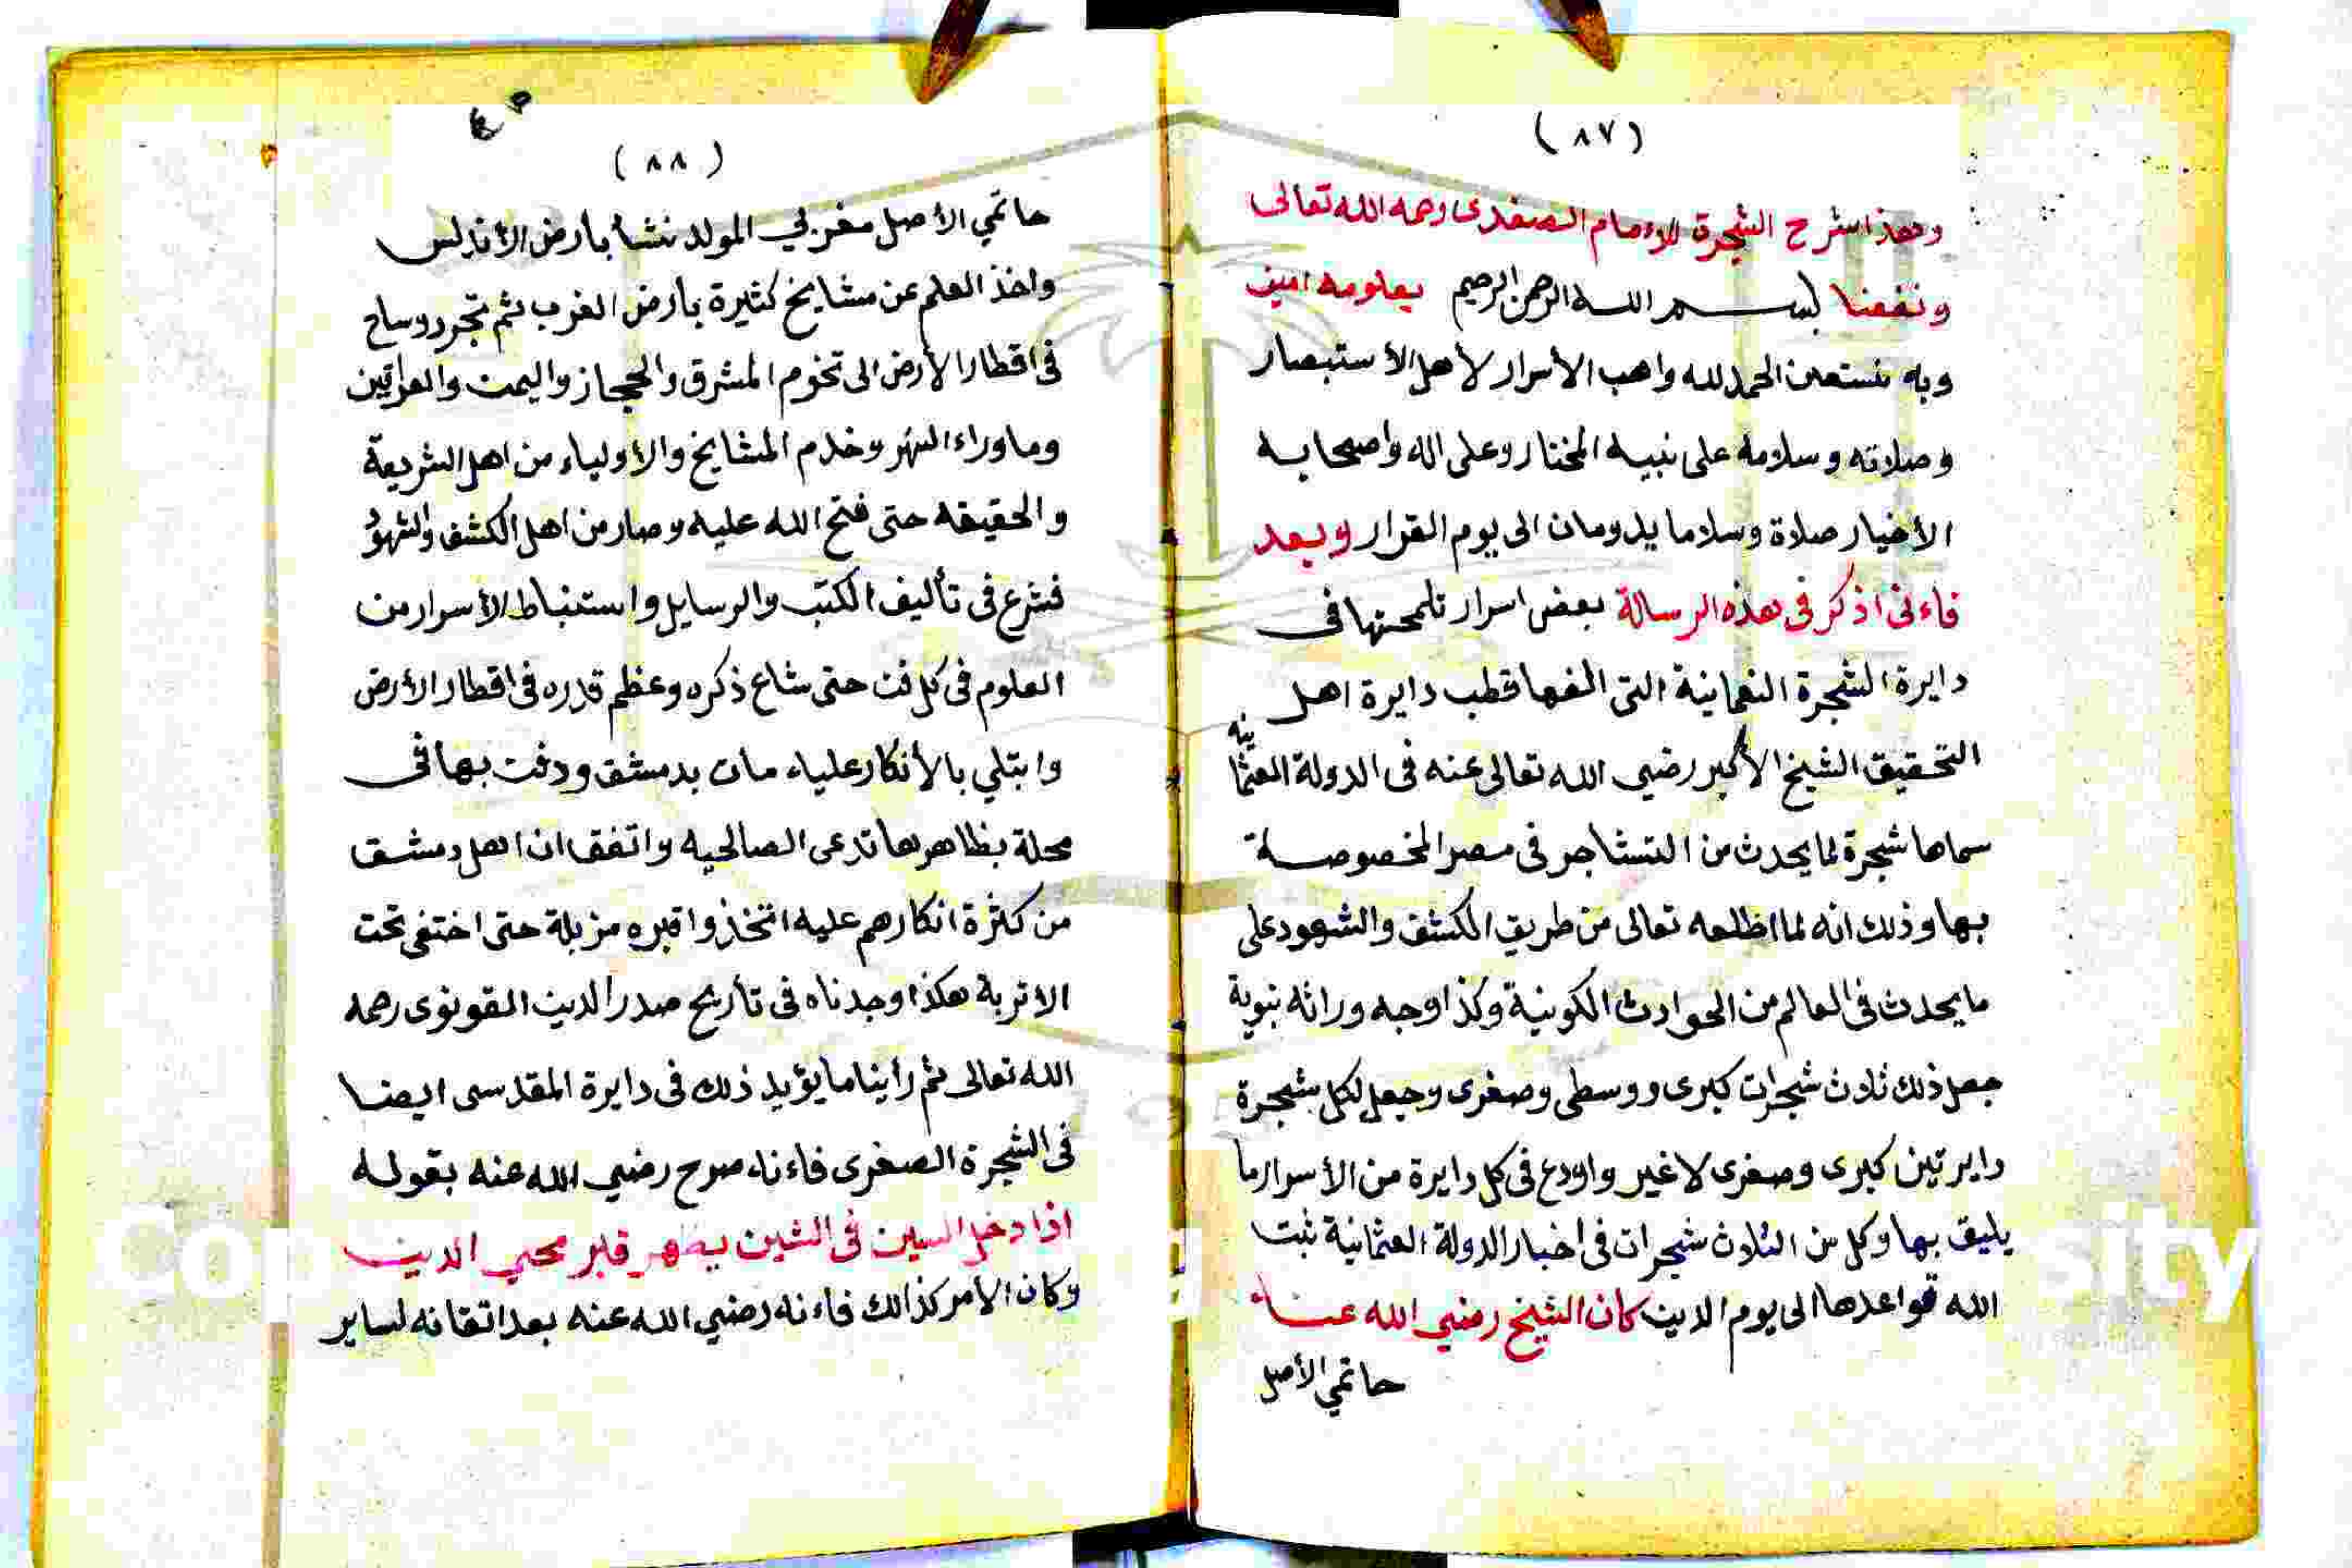 (٨٧)
وهذا شرح الشجرة للإمام الصفدى رحمه الله تعالى
ونفعنا بسم الله الرحمن الرحيم بعلومه امين
وبه نستعين الحمد لله واهب الأسرار لأهل الأستبصار
وصلاته وسلامه على نبيه المختار وعلى اله واصحابه
الأخيار صلاة وسلاما يدومان الى يوم القرار وبعد
فاءنى اذكر فى هذه الرسالة بعض اسرار تلمحتها فى
دايرة الشجرة النعمانية التى الفها قطب دايرة اهل
التحقيق الشيخ الأكبر رضي الله تعالى عنه فى الدولة العثمانيه
سماها شجرة لما يحدث من التشاجر فى مصر المخصوصة
بها وذلك انه لما اطلعه تعالى من طريق الكشف والشهود على
ما يحدث فى العالم من الحوادث الكونية وكذا وجه وراثه نبوية
جعل ذلك ثلاث شجرات كبرى ووسطى وصغرى وجعل لكل شجرة
دايرتين كبرى وصغرى لا غير واودع فى كل دايرة من الأسرار ما
يليق بها وكل من الثلاث شجرات فى اخبار الدولة العثمانية ثبت
الله قواعدها الى يوم الدين كان الشيخ رضي الله عنه
حاتمي الأصل
٤٥
(٨٨)
حاتمي الأصل مغربي المولد نشأ بأرض الأندلس
واخذ العلم عن مشايخ كثيرة بأرض الغرب ثم تجرد وساح
فى اقطار الأرض الى تخوم المشرق والحجاز واليمن والعراقين
وما وراء النهر وخدم المشايخ والأولياء من اهل الشريعة
والحقيقه حتى فتح الله عليه وصار من اهل الكشف والشهود
فشرع فى تأليف الكتب والرسايل واستنباط الأسرار من
العلوم فى كل فن حتى شاع ذكره وعظم قدره فى اقطار الأرض
وابتلي بالأنكار علياء مات بدمشق ودفن بها فى
محلة بظاهرها تدعى الصالحيه واتفق ان اهل دمشق
من كثرة انكارهم عليه اتخذوا قبره مزبلة حتى اختفى تحت
الاتربة هكذا وجدناه فى تأريخ صدر الدين القونوى رحمه
الله تعالى ثم رأينا ما يؤيد ذلك فى دايرة المقدسى ايضا
فى الشجرة الصغرى فاءنه صرح رضي الله عنه بقوله
اذا دخل السين فى الشين يظهر قبر محيي الدين
وكان الأمر كذالك فاءنه رضي الله عنه بعد اتقانه لساير